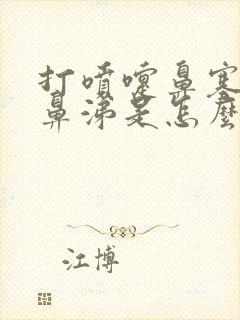 打噴嚏鼻塞
鼻涕是怎麼
江博